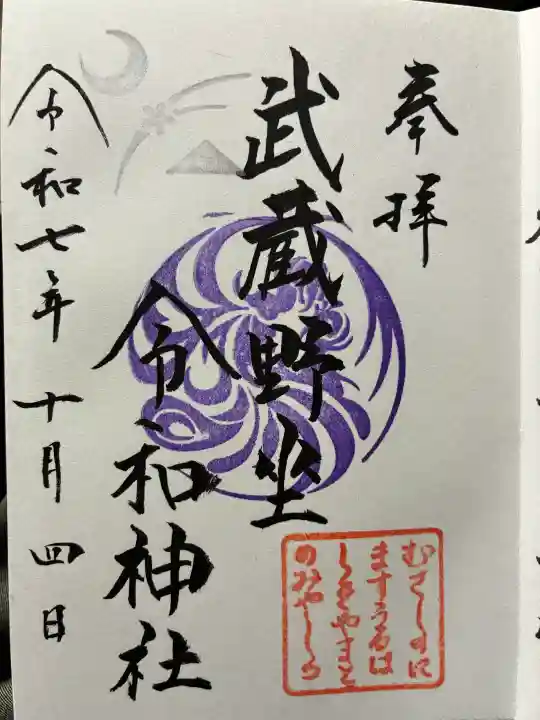 奉拝
武蔵野坐
令和神社
令和七年 十月 四日
むさしのに
ますうるは
しきやまと
のみやしろ